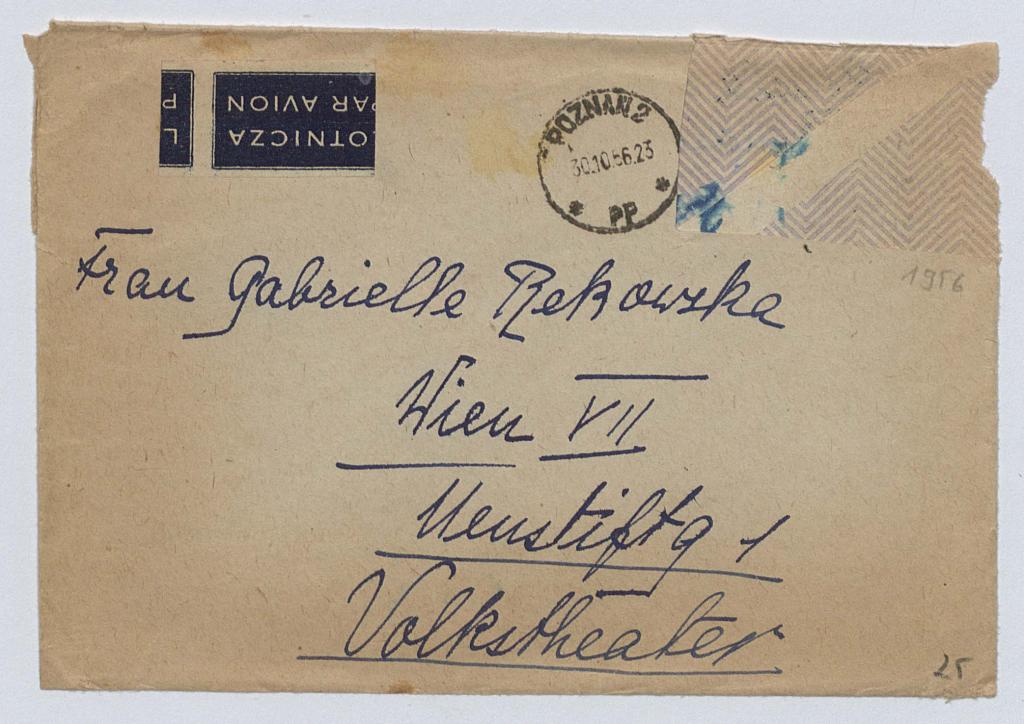 L
P
OTNICZA
PAR AVION
POZNAŃ 2
30.10.56.23
* PP *
1956
Frau Gabrielle Rekowska
Wien VII
Neustiftg 1
Volkstheater
25